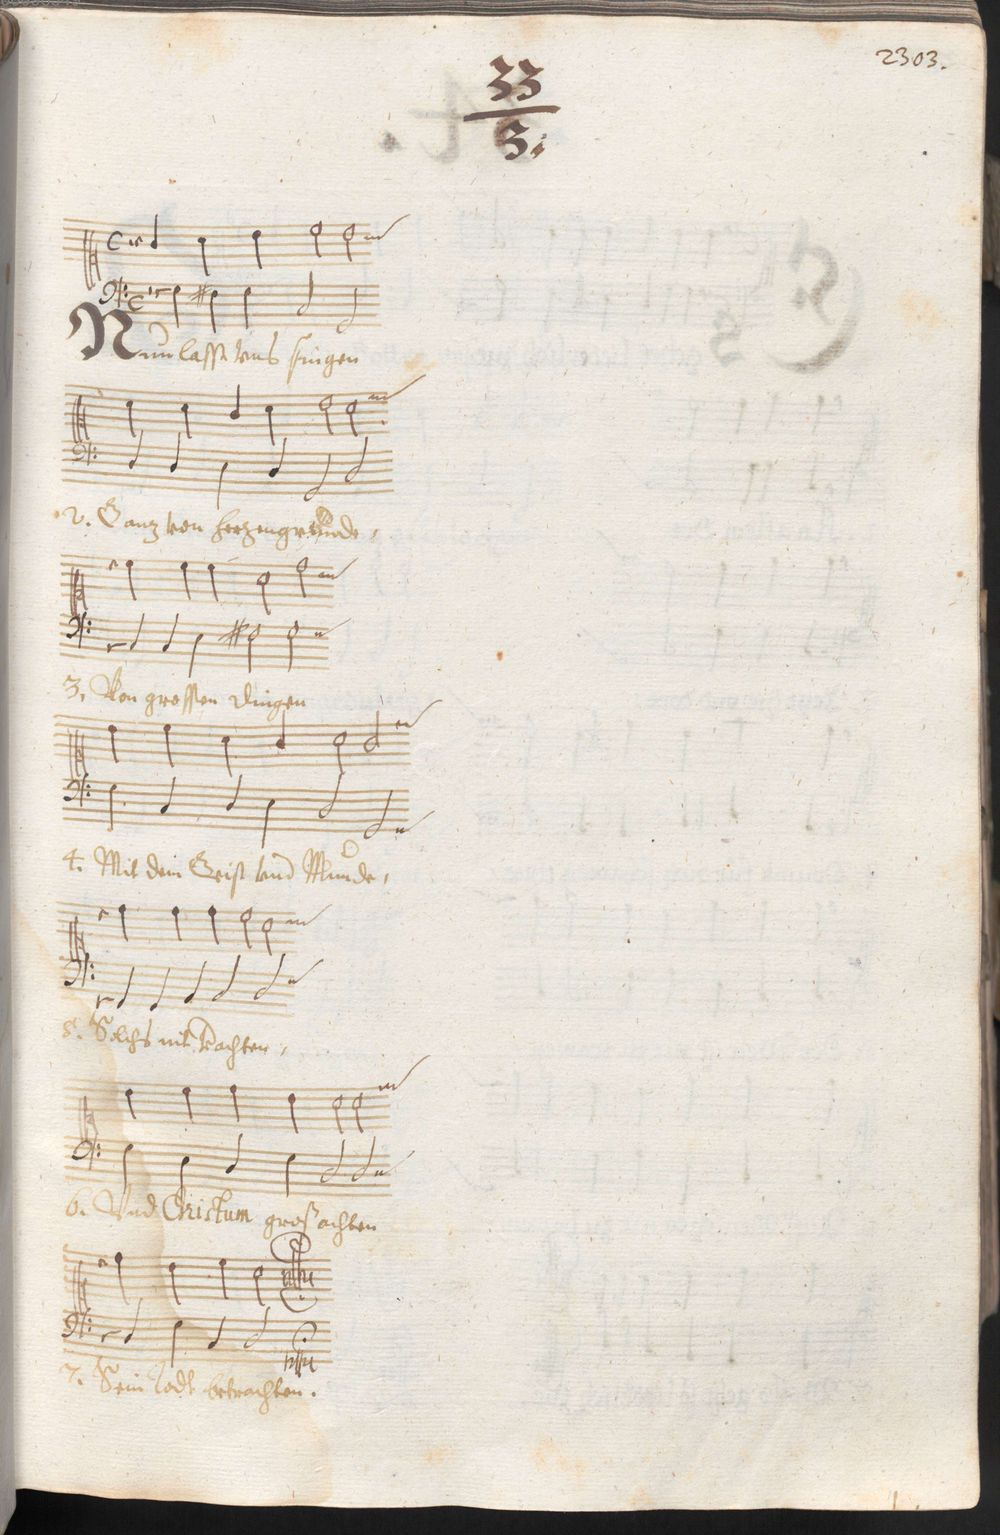 2303.
33
5.
Nun lasst vns singen
2. Gantz von hertzengrunde,
3. Von grossen dingen
4. Mit dem Geist vnd Munde,
5. Solchs nit achten,
6. Vnd Christum groß achten
7. Sein todt betrachten.